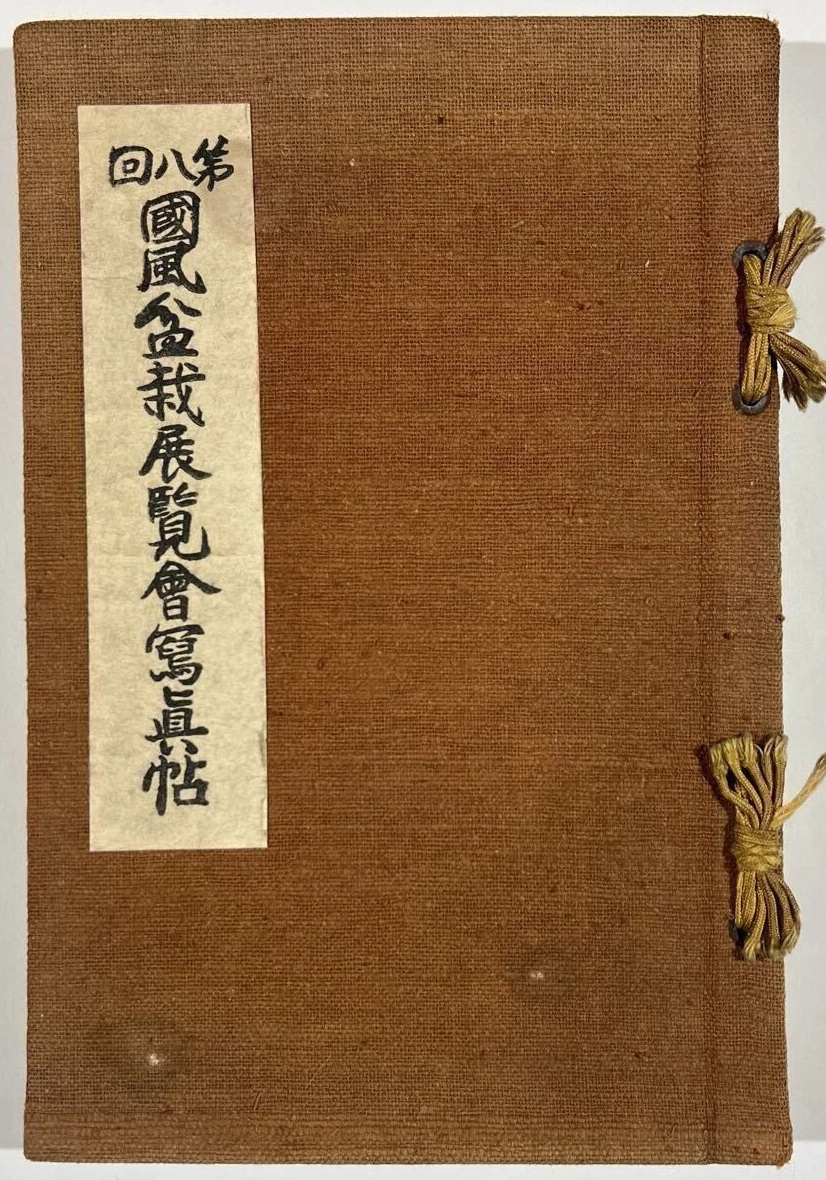 第八回
國風盆栽展覽會寫眞帖